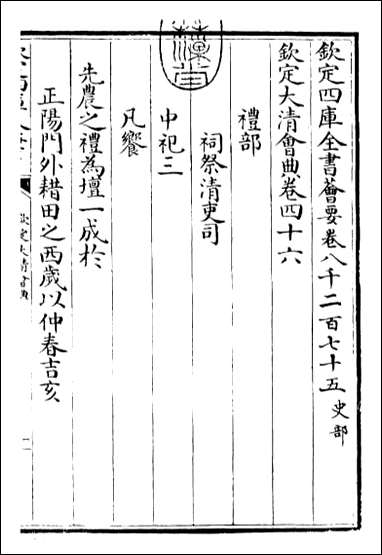 欽定四庫全書薈要卷八千二百七十五 史部
欽定大清會典卷四十六
禮部
祠祭清吏司
中祀三
凡饗
先農之禮為壇一成於
正陽門外耤田之西歲以仲春吉亥
欽定大清會典